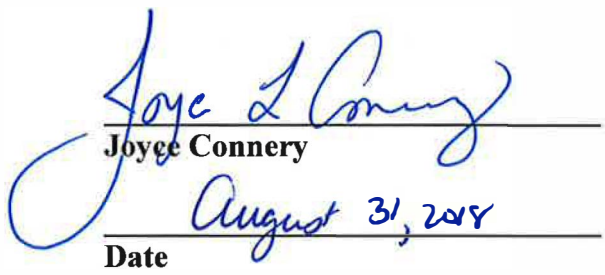 Joyce L Connery
Joyce Connery
August 31, 2018
Date